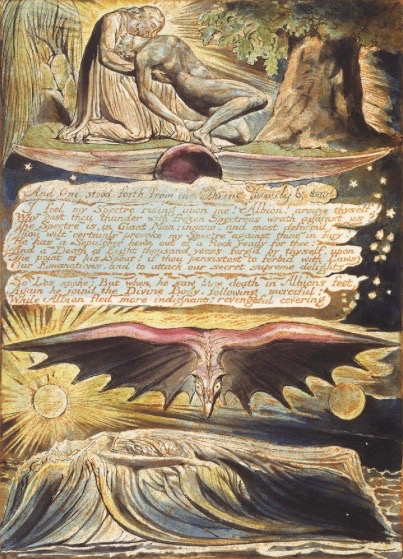 And One stood forth from the Divine Family & said
I feel my Spectre rising upon me! Albion! arouze thyself!
Why dost thou thunder with frozen Spectrous wrath against us?
The Spectre is, in Giant Man; insane, and most deform'd.
Thou wilt certainly provoke my Spectre against thine in fury!
He has a Sepulcher hewn out of a Rock ready for thee:
And a Death of Eight thousand years forg'd by thyself, upon
The point of his Spear! if thou persistest to forbid with Laws
Our Emanations, and to attack our secret supreme delights
So Los spoke: But when he saw blue death in Albions feet,
Again he join'd the Divine Body, following merciful;
While Albion fled more indignant: revengeful covering